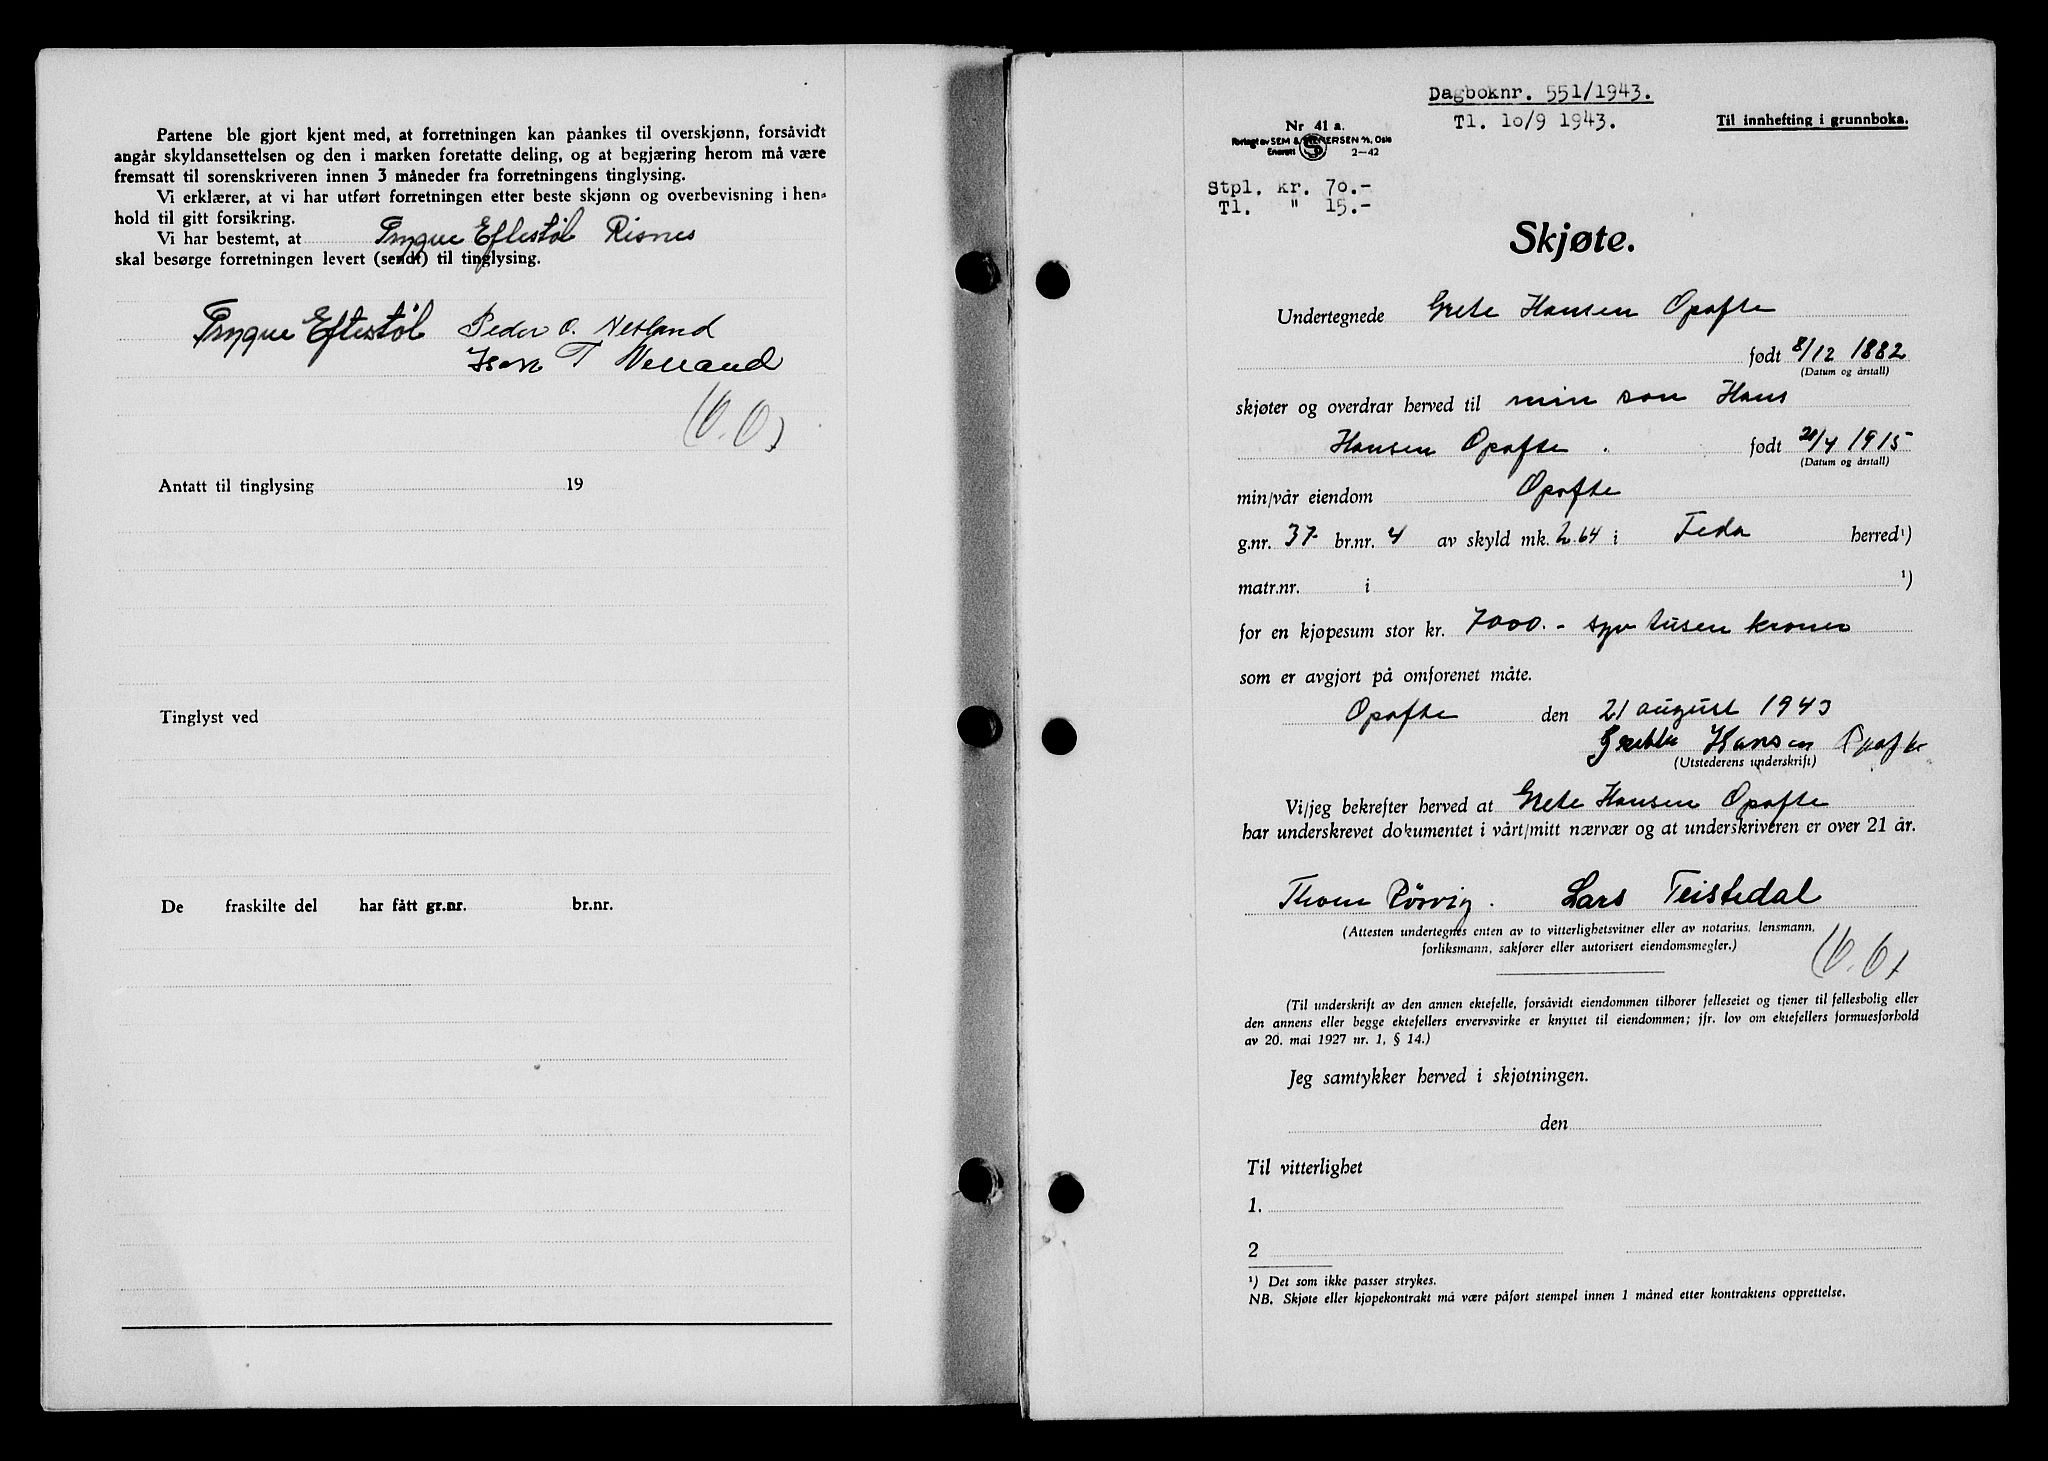 Partene ble gjort kjent med, at forretningen kan påankes til overskjønn, forsåvidt
angår skyldansettelsen og den i marken foretatte deling, og at begjæring herom må være
fremsatt til sorenskriveren innen 3 måneder fra forretningens tinglysing.
Vi erklærer, at vi har utført forretningen etter beste skjønn og overbevisning i hen-
hold til gitt forsikring.
Vi har bestemt, at Trygve Eftestøl Risnes
skal besørge forretningen levert (sendt) til tinglysing.
Trygve Eftestøl Peder O. Netland
T
Antatt til tinglysing 19
Tinglyst ved
De fraskilte del har fått gr.nr. br.nr.
Dagboknr. 551/1943.
Tl. 10/9 1943.
Til innhefting i grunnboka.
Nr 41 a.
Forlagt av SEM & STENERSEN A/S, Oslo
Enerett 2-42
Stpl. kr. 70.-
Tl. " 15.-
Skjøte.
Undertegnede Grete Hansen Opofte
født 8/12 1882
(Datum og årstall)
skjøter og overdrar herved til min son Hans
Hansen Opofte . født 20/4 1915
(Datum og årstall)
min/vår eiendom Opofte
g.nr. 37 br.nr. 4 av skyld mk. 2.64 i Feda herred¹)
matr.nr. i ¹)
for en kjøpesum stor kr. 7000.- syv tusen kroner
som er avgjort på omforenet måte.
Opofte den 21 august 1943
Hansen Opofte
(Utstederens underskrift)
Vi/jeg bekrefter herved at Grete Hansen Opofte
har underskrevet dokumentet i vårt/mitt nærvær og at underskriveren er over 21 år.
Thom Rörvig. Lars Teistedal
(Attesten undertegnes enten av to vitterlighetsvitner eller av notarius, lensmann,
forliksmann, sakfører eller autorisert eiendomsmegler.)
(Til underskrift av den annen ektefelle, forsåvidt eiendommen tilhører felleseiet og tjener til fellesbolig eller
den annens eller begge ektefellers ervervsvirke er knyttet til eiendommen; jfr. lov om ektefellers formuesforhold
av 20. mai 1927 nr. 1, § 14.)
Jeg samtykker herved i skjøtningen.
den
Til vitterlighet
1.
2
¹) Det som ikke passer strykes.
NB. Skjøte eller kjøpekontrakt må være påført stempel innen 1 måned etter kontraktens opprettelse.